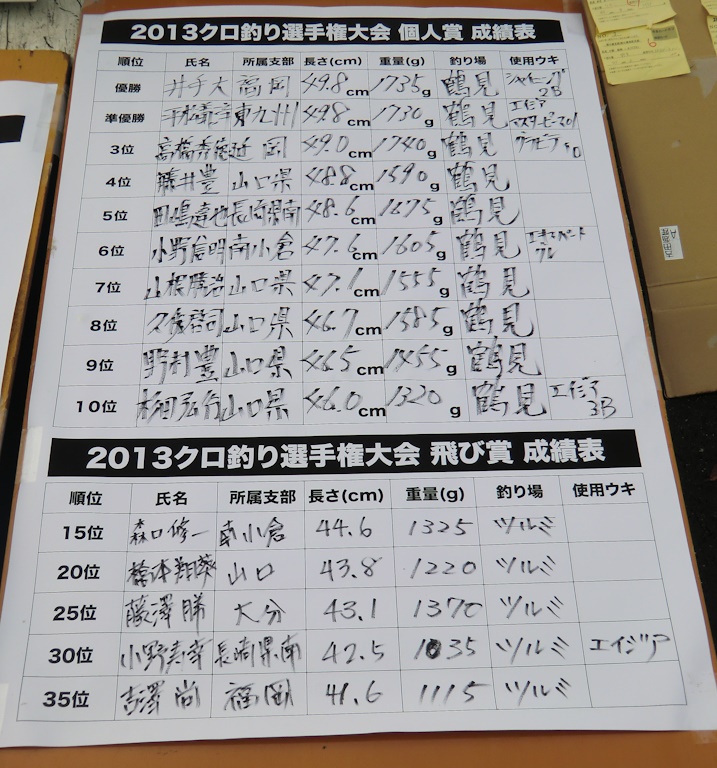 2013クロ釣り選手権大会 個人賞 成績表
順位 氏名 所属支部 長さ(cm) 重量(g) 釣り場 使用ウキ
優勝 井手大 福岡 49.8cm 1735g 鶴見 2B
準優勝 東九州 49.8cm 1730g 鶴見 エイジア マスターピース01
3位 高橋秀徳 延岡 49.0cm 1740g 鶴見
4位 藤井豊 山口県 48.8cm 1590g 鶴見
5位 長崎県南 48.6cm 1675g 鶴見
6位 小野信明 南小倉 47.6cm 1605g 鶴見 エキスパートグレ
7位 山根勝治 山口県 47.1cm 1555g 鶴見
8位 山口県 46.7cm 1585g 鶴見
9位 野村豊 山口県 46.5cm 1455g 鶴見
10位 山口県 46.0cm 1320g 鶴見 エイジア 3B
2013クロ釣り選手権大会 飛び賞 成績表
順位 氏名 所属支部 長さ(cm) 重量(g) 釣り場 使用ウキ
15位 森口修一 南小倉 44.6 1325 ツルミ
20位 山口 43.8 1220 ツルミ
25位 藤澤勝 大分 43.1 1370 ツルミ
30位 小野寿幸 長崎県南 42.5 1035 ツルミ エイジア
35位 吉澤尚 福岡 41.6 1115 ツルミ